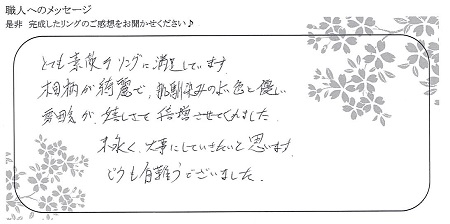 職人へのメッセージ
是非 完成したリングのご感想をお聞かせください♪
とても素敵なリングに満足しています。
木目柄が綺麗で、肌馴染みのよい色と優しい
が、嬉しさを倍増させてくれました。
末永く、大事にしていきたいと思います。
どうも有難うございました。